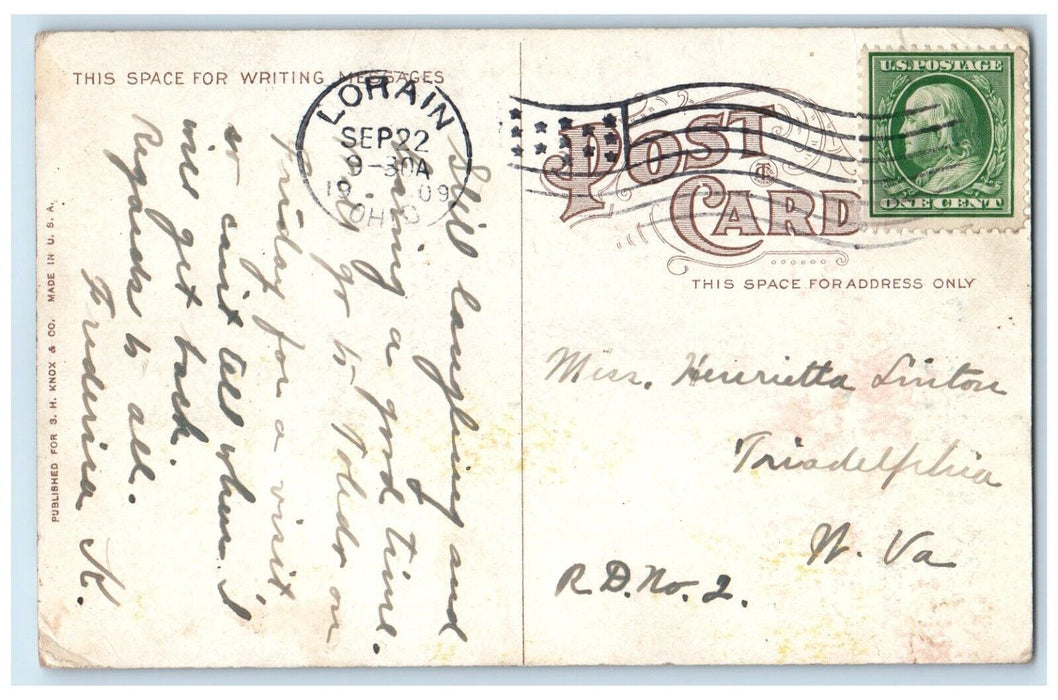 THIS SPACE FOR WRITING MESSAGES
Still laughing and
having a good time.
Will go to Toledo on
Friday for a visit
so cant tell when I
will get back.
Regards to all.
Frederica K.
PUBLISHED FOR S. H. KNOX & CO. MADE IN U. S. A.
LORAIN
SEP 22
9-30A
19 09
OHIO
POST
CARD
U.S. POSTAGE
ONE CENT
THIS SPACE FOR ADDRESS ONLY
Miss. Henrietta Linton
Triadelphia
W. Va
R.D. No. 2.